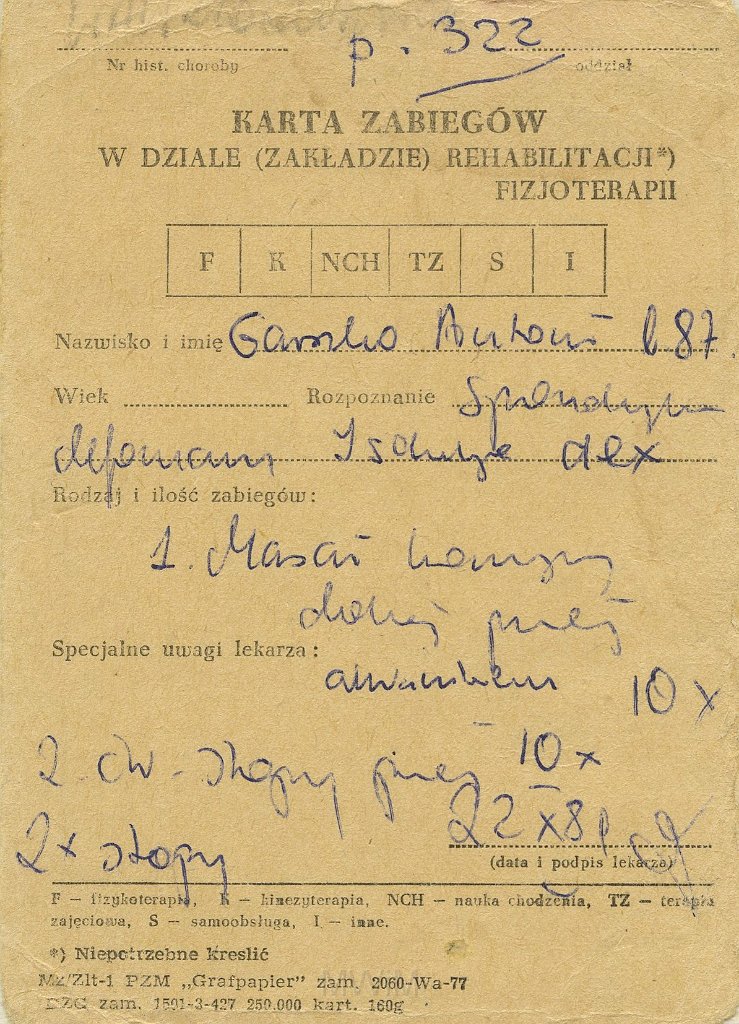 p. 322
Nr hist. choroby oddział
KARTA ZABIEGÓW
W DZIALE (ZAKŁADZIE) REHABILITACJI*)
FIZJOTERAPII
F K NCH TZ S I
Nazwisko i imię Antoni l 87
Wiek Rozpoznanie
dex
Rodzaj i ilość zabiegów:
1. Masaż kończyny
dolnej prawej
Specjalne uwagi lekarza:
10 x
2. ćw. stopy prawej 10 x
22 X 81
2x stopy
(data i podpis lekarza)
F — fizykoterapia, K — kinezyterapia, NCH — nauka chodzenia, TZ — terapia
zajęciowa, S — samoobsługa, I — inne.
*) Niepotrzebne kreślić
Mz/Zlt-1 PZM „Grafpapier" zam. 2060-Wa-77
DZG zam. 1501-3-427 250.000 kart. 160g